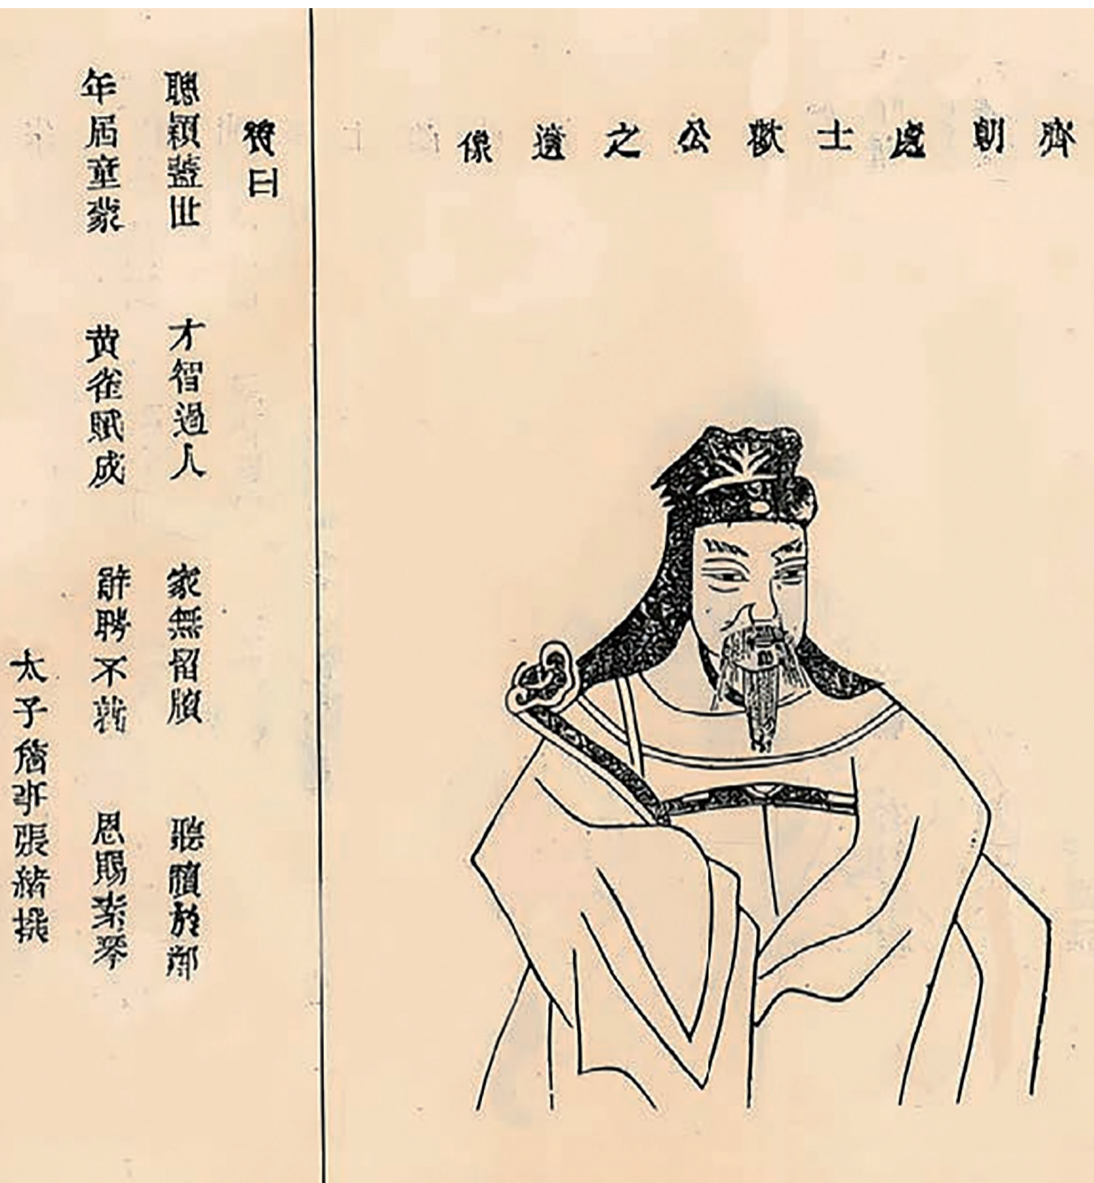 齊朝處士歡公之遺像
曰
聰穎蓋世 才智過人 家無留 聽讀於鄰
年居童蒙 黃雀賦成 辭聘不就 恩賜素琴
太子詹事張緒撰